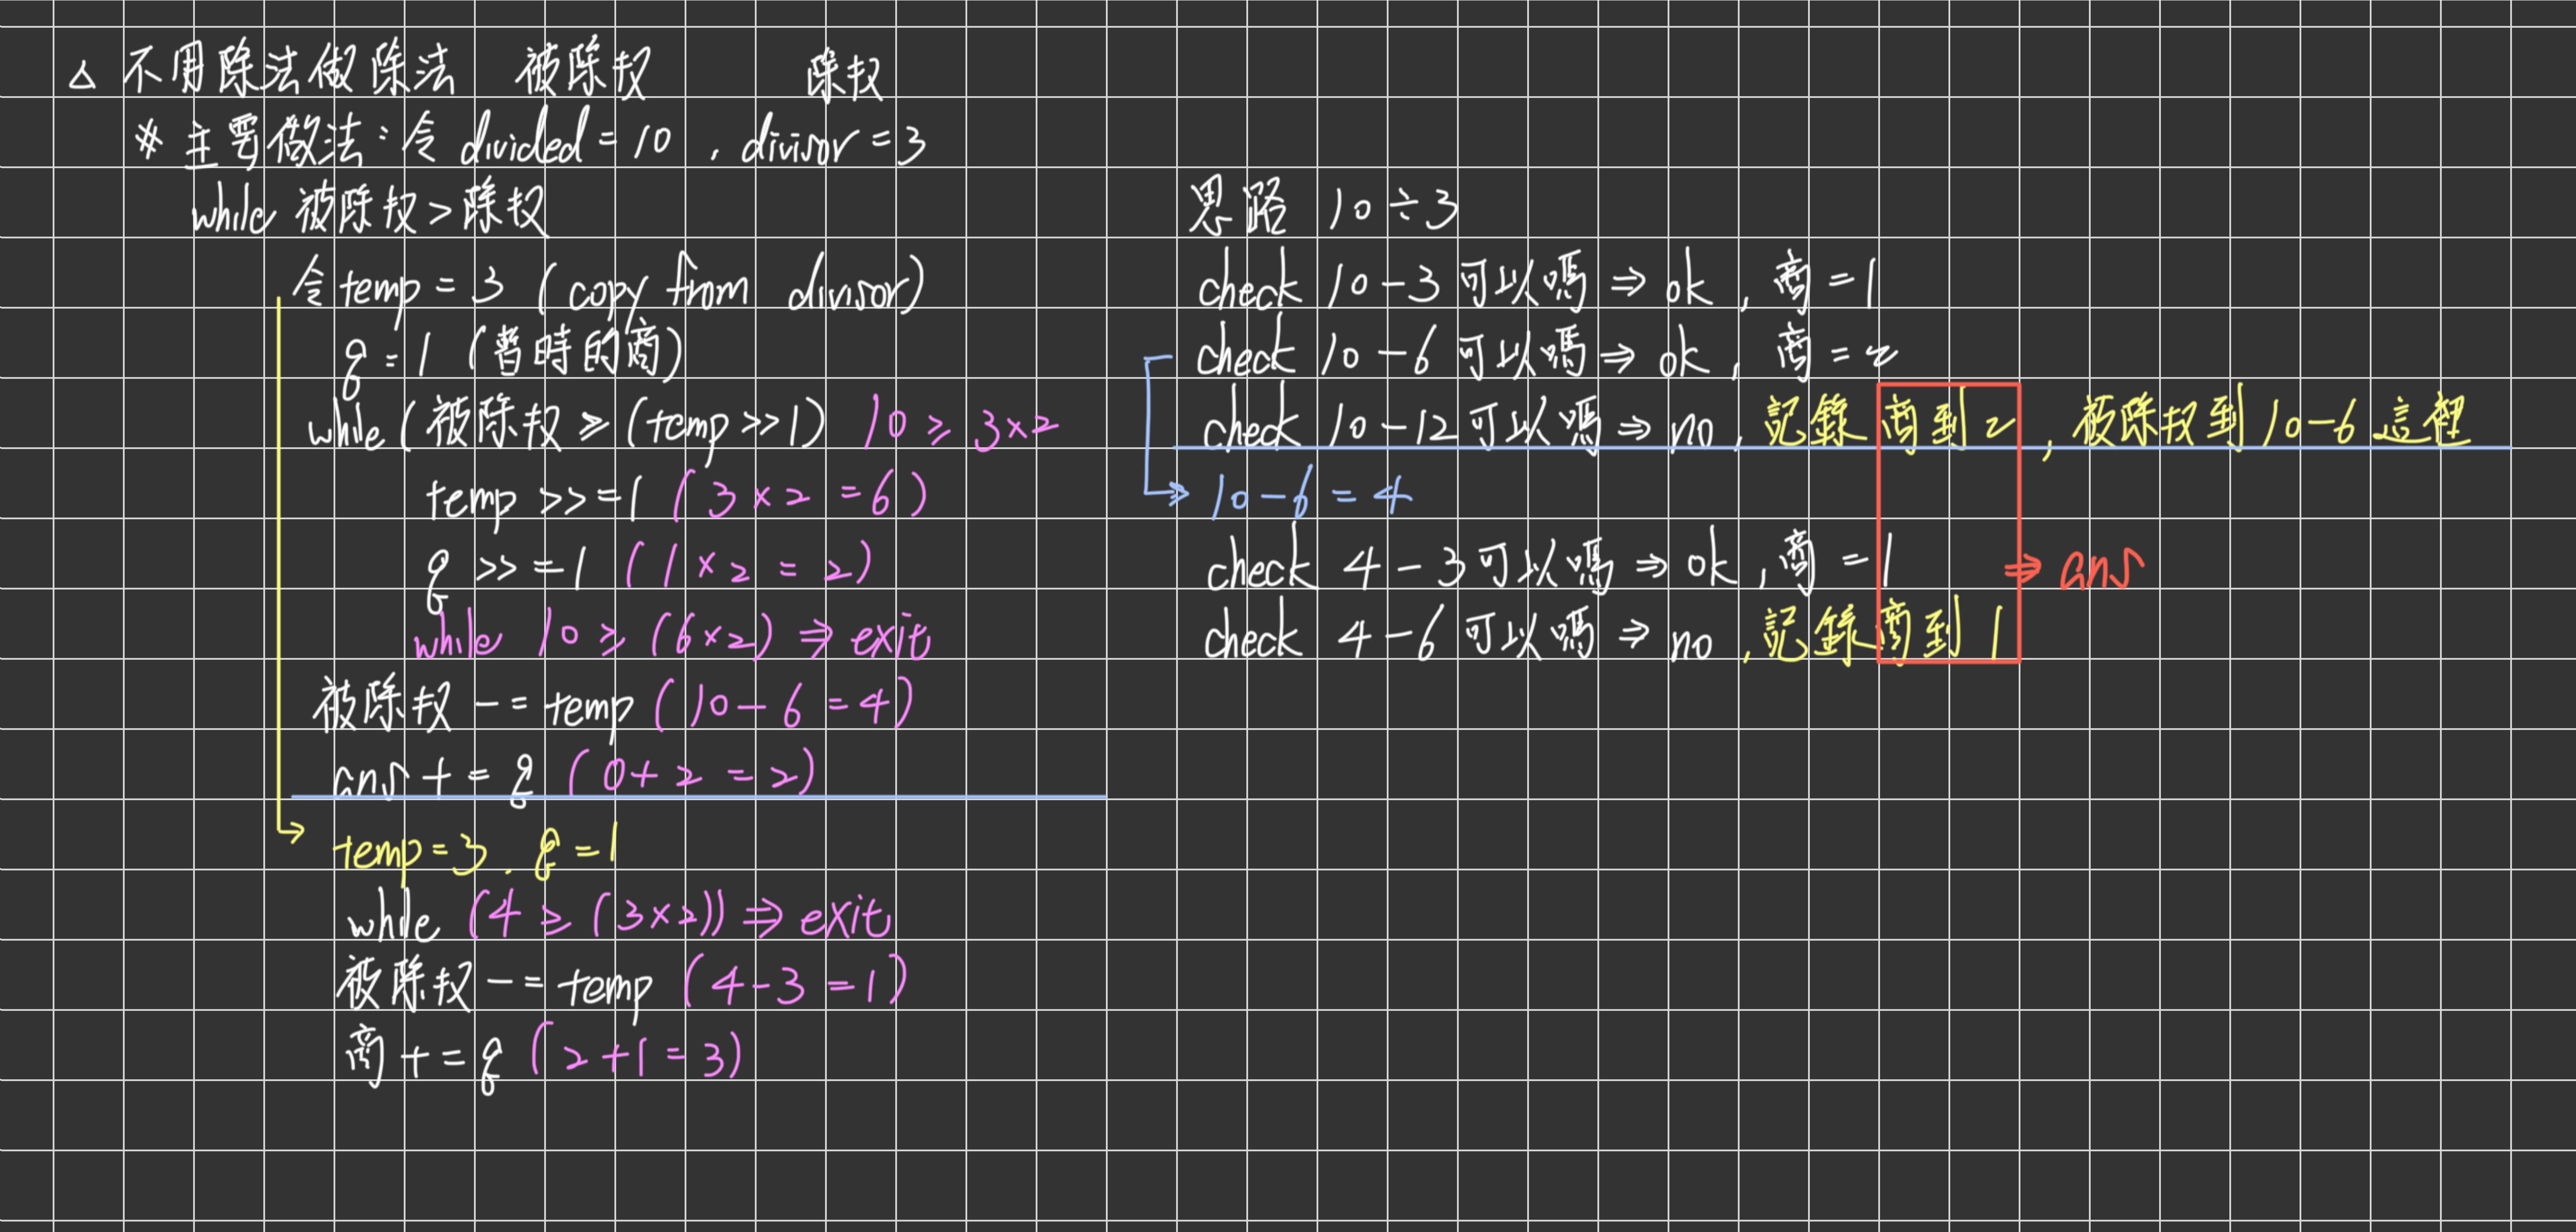 △ 不用除法做除法 被除数 除数
* 主要做法:令 divided = 10 , divisor = 3
while 被除数 > 除数
令 temp = 3 ( copy from divisor)
q = 1 (暫時的商)
while ( 被除数 ≥ (temp >> 1) 10 ≥ 3×2
temp >>= 1 ( 3 × 2 = 6 )
q >>= 1 ( 1 × 2 = 2 )
while 10 ≥ (6×2) ⇒ exit
被除数 -= temp ( 10 - 6 = 4 )
ans += q ( 0 + 2 = 2 )
temp = 3 . q = 1
while (4 ≥ (3×2)) ⇒ exit
被除数 -= temp ( 4 - 3 = 1 )
商 += q ( 2 + 1 = 3 )
思路 10 ÷ 3
check 10 - 3 可以嗎 ⇒ ok , 商 = 1
check 10 - 6 可以嗎 ⇒ ok , 商 = 2
check 10 - 12 可以嗎 ⇒ no , 記錄 商到 2 , 被除数到 10 - 6 這裡
10 - 6 = 4
check 4 - 3 可以嗎 ⇒ ok , 商 = 1
⇒ ans
check 4 - 6 可以嗎 ⇒ no , 記錄商到 1